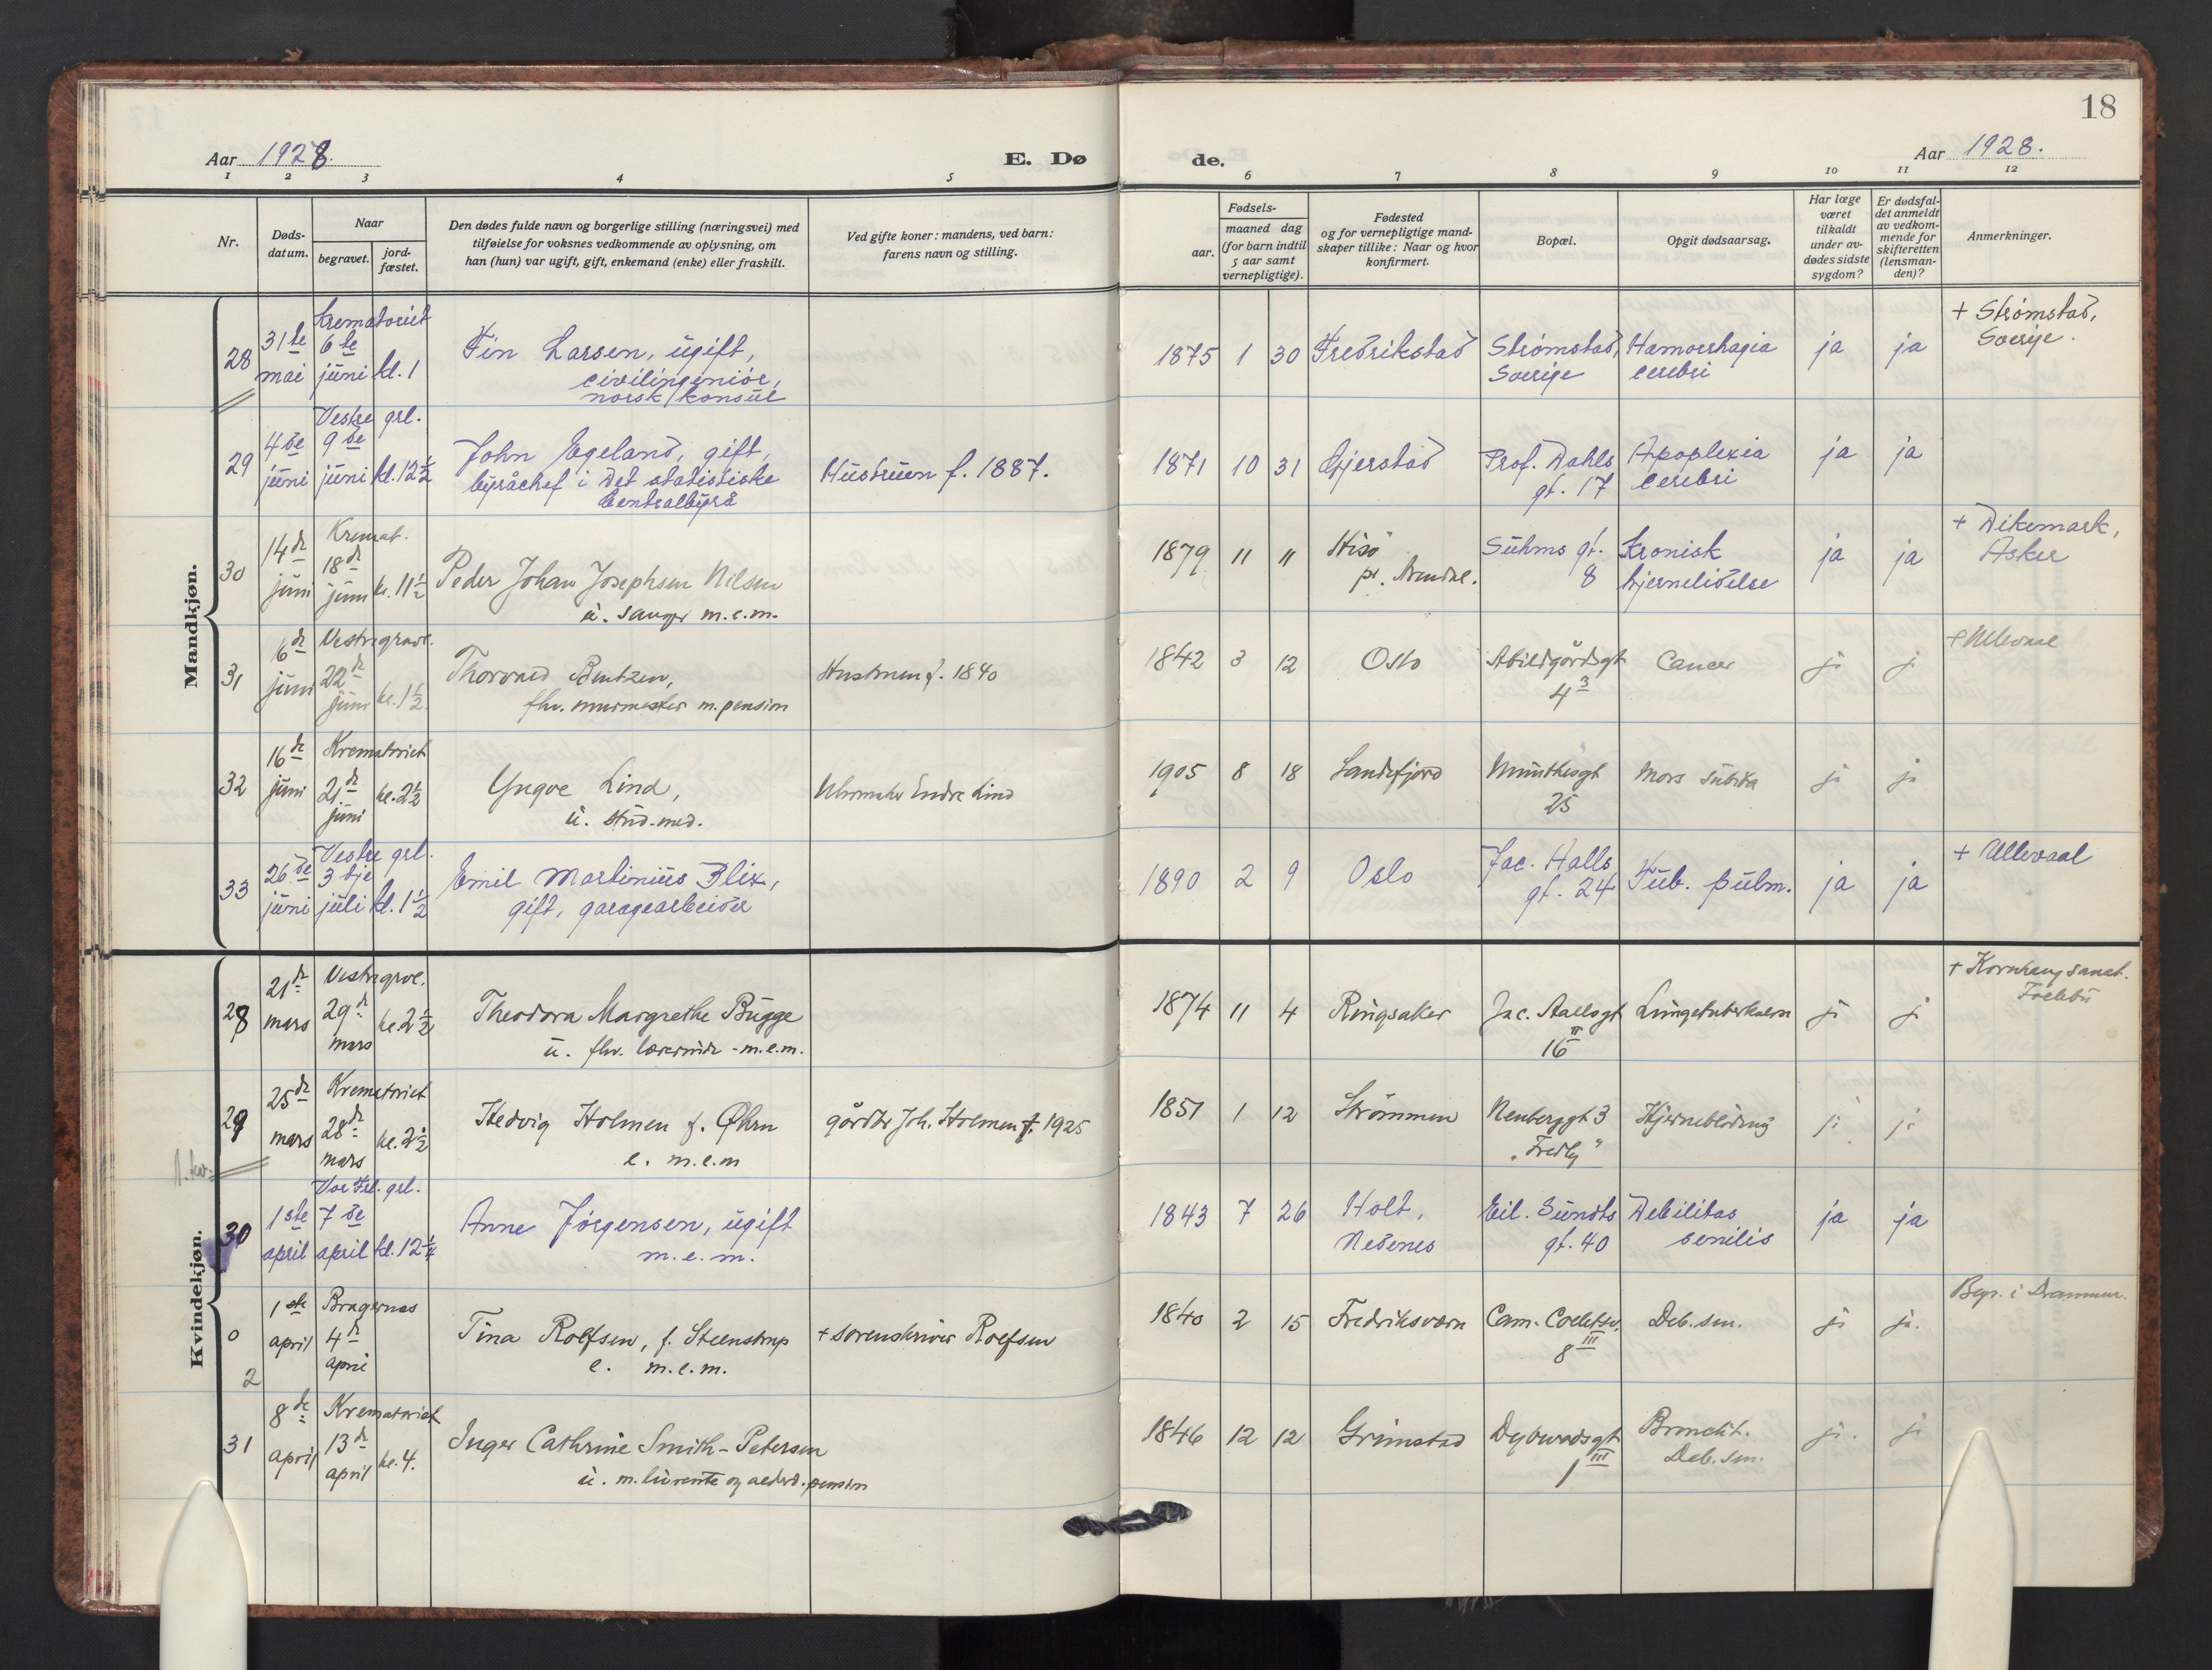 18
Aar 1928.
E. Dø
de.
Aar 1928.
1 2 3 4 5
6 7 8 9 10 11 12
Nr.
Døds-
datum.
Naar
begravet.
jord-
fæstet.
Den dødes fulde navn og borgerlige stilling (næringsvei) med
tilføielse for voksnes vedkommende av oplysning, om
han (hun) var ugift, gift, enkemand (enke) eller fraskilt.
Ved gifte koner: mandens, ved barn:
farens navn og stilling.
Fødsels-
aar.
maaned dag
(for barn indtil
5 aar samt
vernepligtige).
Fødested
og for vernepligtige mand-
skaper tillike: Naar og hvor
konfirmert.
Bopæl.
Opgit dødsaarsag.
Har læge
været
tilkaldt
under av-
dødes sidste
sygdom?
Er dødsfal-
det anmeldt
av vedkom-
mende for
skifteretten
(lensman-
den)?
Anmerkninger.
Mandkjøn.
28
31te
mai
Krematoriet
6te
juni
kl. 1
Fin Larsen, ugift,
civilingeniør,
norsk konsul
1875 1 30
Fredrikstad
Strømstad,
Sverige
Hæmorrhagia
cerebri
ja ja
+ Strømstad,
Sverige.
29
4de
juni
Vestre grl.
9de
juni
kl. 12½
John Egeland, gift,
byråchef i Det statistiske
Centralbyrå
Hustruen f. 1887.
1871 10 31
Gjerstad
Prof. Dahls
gt. 17
Apoplexia
cerebri
ja ja
30
14de
juni
Kremat.
18de
juni
kl. 11½
Peder Johan Josephsen Nilsen
u. sanger m.e.m.
1879 11 11
Hisø
pr. Arendal.
Suhms gt.
8
Kronisk
hjernelidelse
ja ja
+ Dikemark,
Asker
31
6de
juni
Vestregravl.
22de
juni
kl. 1½
Thorvald Bentzen,
fhv. murmester m. pension
Hustruen f. 1840
1842 3 12
Oslo
Abildgårdsgt
4 3
Cancer
ja ja
+ Ullevaal
32
16de
juni
Krematoriet
21de
juni
kl. 2½
Yngve Lind,
u. stud. med.
Uhrmaker Endre Lind
1905 8 18
Sandefjord
Munthesgt
25
Mors subita
ja ja
33
26de
juni
Vestre grl.
3dje
juli
kl. 1½
Emil Martinius Blix,
gift, garagearbeider
1890 2 9
Oslo
Jac. Halls
gt. 24
Tub. pulm.
ja ja
+ Ullevaal
Kvindekjøn.
28
21de
mars
Vestregrvl.
29de
mars
kl. 2½
Theodora Margrethe Bugge
u. fhv. lærerinde - m.e.m.
1874 11 4
Ringsaker
Jac. Aallsgt
16 II
Lungetuberkulose
ja ja
+ Kornhaug sanat.
Follebu
29
25de
mars
Krematoriet
28de
mars
kl. 2½
Hedvig Holmen f. Øhrn
e. m.e.m
gårdbr Joh. Holmen †. 1925
1851 1 12
Strømmen
Neuberggt 3
"Fredly"
Hjerneblødning
ja ja
1. kv.
30
1ste
april
Vor Frl. grl.
7de
april
kl. 12¼
Anne Jørgensen, ugift
m.e.m.
1843 7 26
Holt,
Nedenes
Eil. Sundts
gt. 40
Debilitas
senilis
ja ja
0
1ste
april
Bragernes
4de
april
Tina Rolfsen, f. Steenstrup
e. m.e.m.
+ sorenskriver Rolfsen
1840 2 15
Fredriksværn
Cam. Collettsv.
8 III
Deb. sen.
ja ja.
Begr. i Drammen.
2
31
8de
april
Krematoriet
13de
april
kl. 4.
Inger Cathrine Smith-Petersen
u. m. livrente og alderd. pension
1846 12 12
Grimstad
Dybwadsgt
1 III
Bronchit.
Deb. sen.
ja. ja